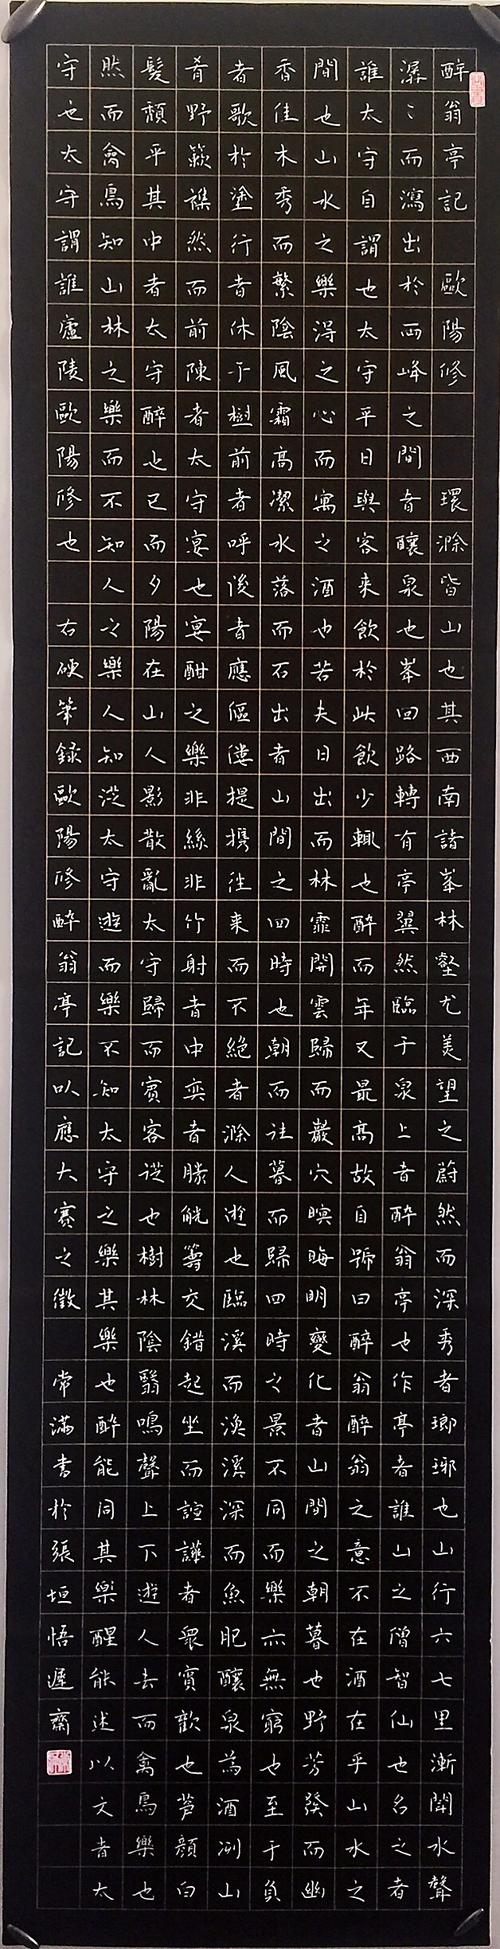 醉翁亭記 歐陽修 環滁皆山也其西南諸峯林壑尤美望之蔚然而深秀者瑯琊也山行六七里漸聞水聲
潺〻而瀉出於兩峰之間者釀泉也峯回路轉有亭翼然臨于泉上者醉翁亭也作亭者誰山之僧智仙也名之者
誰太守自謂也太守平日與客來飲於此飲少輒也醉而年又最高故自號曰醉翁醉翁之意不在酒在乎山水之
間也山水之樂得之心而寓之酒也若夫日出而林霏開雲歸而巖穴暝晦明變化者山間之朝暮也野芳發而幽
香佳木秀而繁陰風霜高潔水落而石出者山間之四時也朝而往暮而歸四時之景不同而樂亦無窮也至于負
者歌於塗行者休于樹前者呼後者應傴僂提携往来而不絕者滁人遊也臨溪而漁溪深而魚肥釀泉為酒冽山
肴野蔌襍然而前陳者太守宴也宴酣之樂非絲非竹射者中奕者勝觥籌交錯起坐而諠譁者衆賓歡也蒼顏白
髮頹乎其中者太守醉也已而夕陽在山人影散亂太守歸而賓客從也樹林陰翳鳴聲上下遊人去而禽鳥樂也
然而禽鳥知山林之樂而不知人之樂人知從太守遊而樂不知太守之樂其樂也醉能同其樂醒能述以文者太
守也太守謂誰廬陵歐陽修也 右硬筆録歐陽修醉翁亭記以應大賽之徵 常滿書於張垣悟遲齋